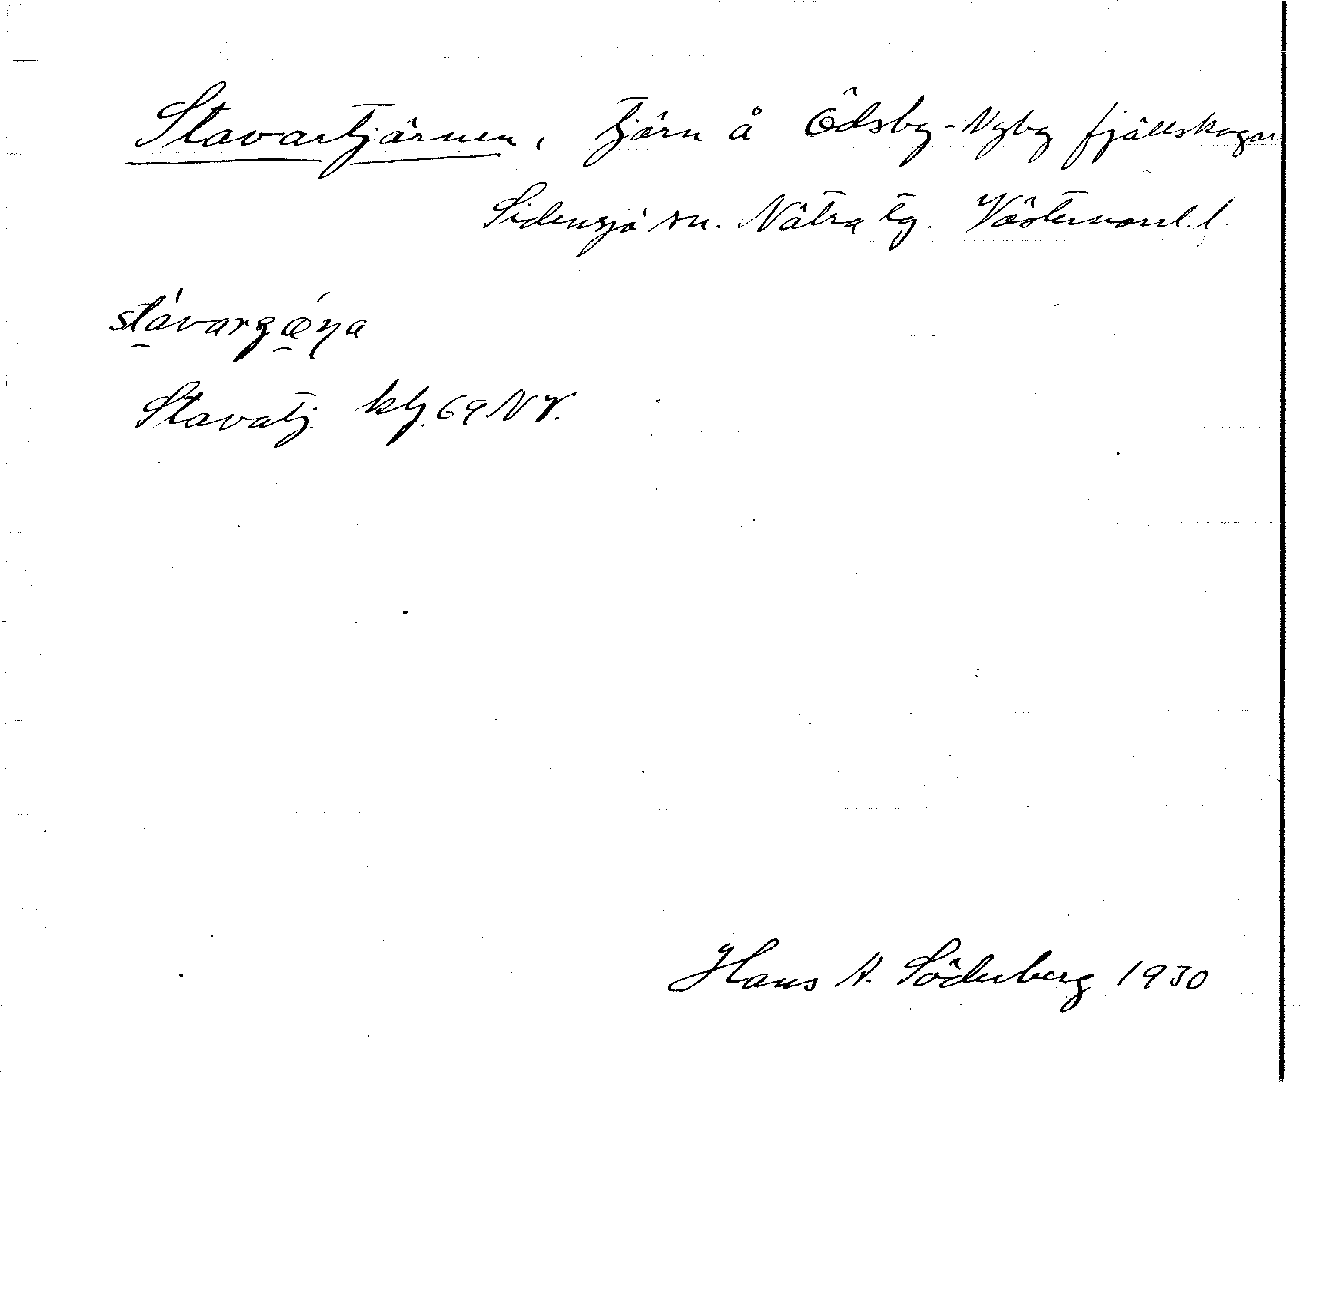 Stavartjärnen, tjärn å Ödsby-Nyby fjällskogar
Sidensjö sn. Nätra tg. Västernorrl. l.
Stavatj. ktj. 69 NV.
Hans A. Söderberg 1930